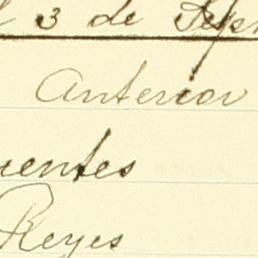 3 de Sep
Anterior
uentes
Reyes